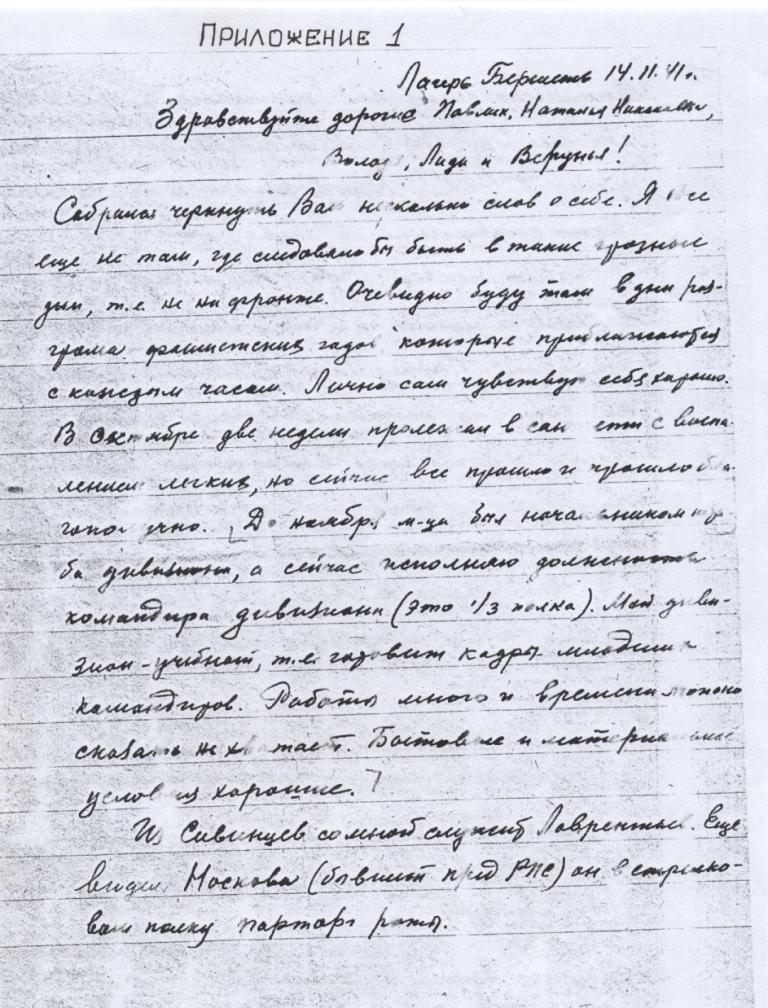 ПРИЛОЖЕНИЕ 1
Лагерь 14.11.41г.
Здравствуйте дорогие Павлик, Наталья Николаевна,
Володя, Лида и Верунья!
Собрался черкнуть Вам несколько слов о себе. Я все
еще не там, где следовало бы быть в такие грозные
дни, т.е. не на фронте. Очевидно буду там в дни раз-
грома фашистских гадов которые приближаются
с каждым часом. Лично сам чувствую себя хорошо.
В октябре две недели пролежал в сан части с воспа-
лением легких, но сейчас все прошло и прошло бла-
гополучно. До ноября м-ца был начальником шта-
ба дивизиона, а сейчас исполняю должность
командира дивизиона (это 1/3 полка). Мой диви-
зион - учебный, т.е. готовит кадры младших
командиров. Работы много и времени можно
сказать не хватает. Бытовые и материальные
условия хорошие.
Из Сивинцев со мной служит Лаврентьев. Еще
видел Москова (бывший пред РПС) он в стрелко-
вом полку парторг роты.